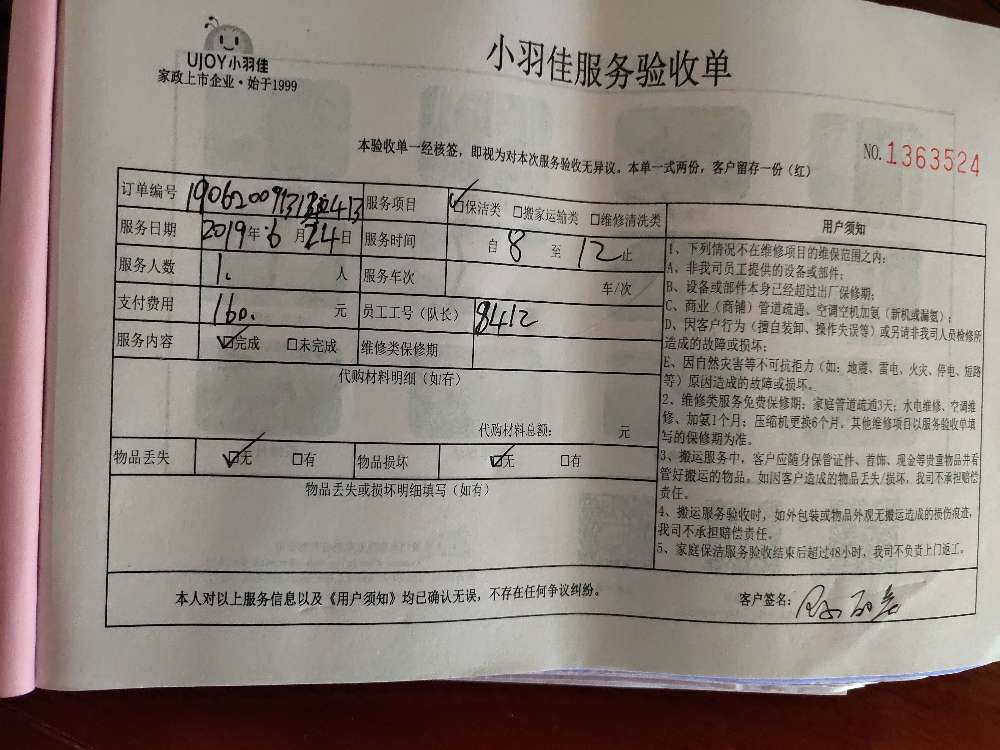 UJOY小羽佳
家政上市企业·始于1999
小羽佳服务验收单
本验收单一经核签，即视为对本次服务验收无异议。本单一式两份，客户留存一份（红）
NO.1363524
订单编号
服务项目 ☑保洁类 □搬家运输类 □维修清洗类
服务日期 2019年6月24日 服务时间 自8至12止
服务人数 1. 人 服务车次 车/次
支付费用 160. 元 员工工号（队长） 8412
服务内容 ☑完成 □未完成 维修类保修期
代购材料明细（如有）
代购材料总额： 元
物品丢失 ☑无 □有 物品损坏 ☑无 □有
物品丢失或损坏明细填写（如有）
用户须知
1、下列情况不在维修项目的维保范围之内：
A、非我司员工提供的设备或部件；
B、设备或部件本身已经超过出厂保修期；
C、商业（商铺）管道疏通、空调空机加氨（新机或漏氨）；
D、因客户行为（擅自装卸、操作失误等）或另请非我司人员检修所
造成的故障或损坏；
E、因自然灾害等不可抗拒力（如：地震、雷电、火灾、停电、短路
等）原因造成的故障或损坏。
2、维修类服务免费保修期：家庭管道疏通3天；水电维修、空调维
修、加氨1个月；压缩机更换6个月。其他维修项目以服务验收单填
写的保修期为准。
3、搬运服务中，客户应随身保管证件、首饰、现金等贵重物品并看
管好搬运的物品。如因客户造成的物品丢失/损坏，我司不承担赔偿
责任。
4、搬运服务验收时，如外包装或物品外观无搬运造成的损伤痕迹，
我司不承担赔偿责任。
5、家庭保洁服务验收结束后超过48小时，我司不负责上门返工。
本人对以上服务信息以及《用户须知》均已确认无误，不存在任何争议纠纷。
客户签名：